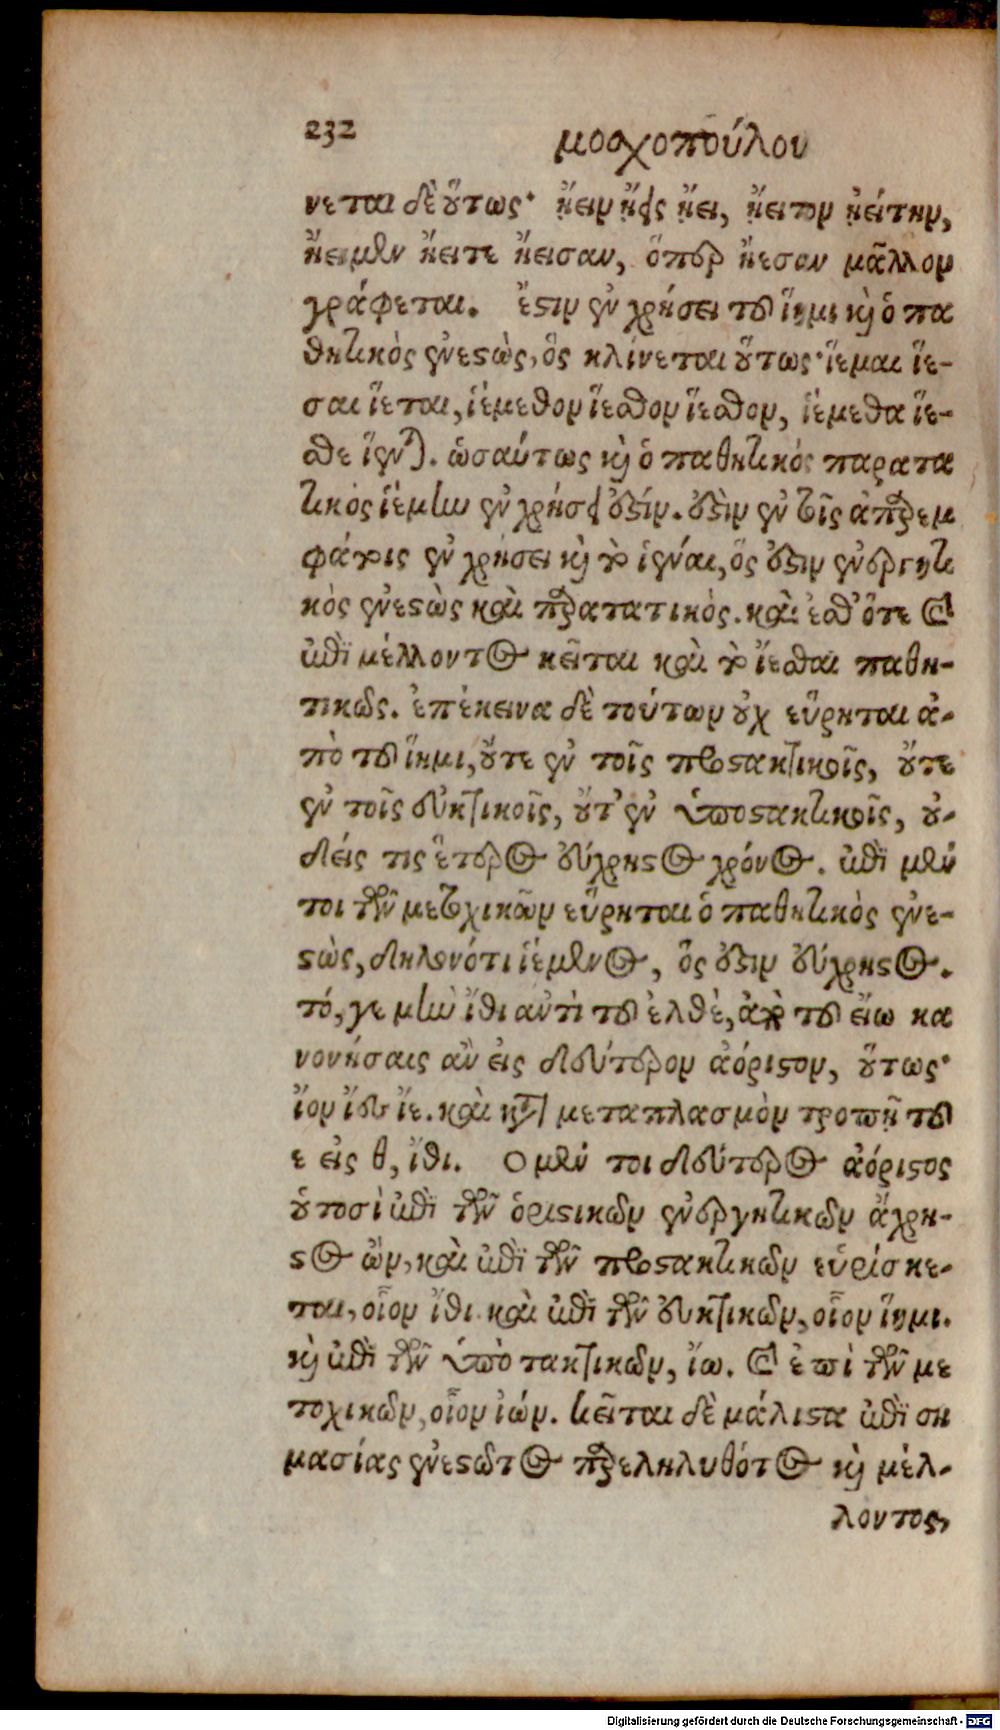 232 μοσχοπούλου
νεται δὲ οὕτως· ᾔειν ᾔεις ᾔει, ᾔειτον ᾐείτην,
ᾔειμεν ᾔειτε ᾔεισαν, ὅπερ ᾔεσαν μᾶλλον
γράφεται. ἔστιν ἐν χρήσει τοῦ ἵημι καὶ ὁ πα
θητικὸς ἐνεστὼς, ὃς κλίνεται οὕτως· ἵεμαι ἵε-
σαι ἵεται, ἱέμεθον ἵεσθον ἵεσθον, ἱέμεθα ἵε-
σθε ἵενται. ὡσαύτως καὶ ὁ παθητικὸς παρατα
τικὸς ἱέμην ἐν χρήσει ἐστίν. ἔστιν ἐν ταῖς ἀπαρεμ
φάτοις ἐν χρήσει καὶ τὸ ἱέναι, ὅς ἐστιν ἐνεργητι
κὸς ἐνεστὼς καὶ παρατατικὸς. καὶ ἔσθ' ὅτε καὶ
ἐπὶ μέλλοντος κεῖται καὶ τὸ ἵεσθαι παθη-
τικῶς. ἐπέκεινα δὲ τούτων οὐχ εὕρηται ἀ-
πὸ τοῦ ἵημι, οὔτε ἐν τοῖς προστακτικοῖς, οὔτε
ἐν τοῖς εὐκτικοῖς, οὔτ' ἐν ὑποτακτικοῖς, οὐ-
δείς τις ἕτερος εὔχρηστος χρόνος. ἐπὶ μέν
τοι τῶν μετοχικῶν εὕρηται ὁ παθητικὸς ἐνε-
στὼς, δηλονότι ἱέμενος, ὅς ἐστιν εὔχρηστος.
τό, γε μὴν ἴθι ἀντὶ τοῦ ἐλθὲ, ἀπὸ τοῦ εἴω κα
νονήσαις ἂν εἰς δεύτερον ἀόριστον, οὕτως·
ἴον ἴες ἴε. καὶ κατὰ μεταπλασμὸν τροπῇ τοῦ
ε εἰς θ, ἴθι. Ο μέν τοι δεύτερος ἀόριστος
οὑτοσὶ ἐπὶ τῶν ὁριστικῶν ἐνεργητικῶν ἄχρη-
στος ὢν, καὶ ἐπὶ τῶν προστακτικῶν εὑρίσκε-
ται, οἷον ἴθι καὶ ἐπὶ τῶν εὐκτικῶν, οἷον ἵημι.
καὶ ἐπὶ τῶν ὑποτακτικῶν, ἴω. καὶ ἐπὶ τῶν με
τοχικῶν, οἷον ἰών. κεῖται δὲ μάλιστα ἐπὶ ση
μασίας ἐνεστῶτος παρεληλυθότος καὶ μέλ-
λοντος,
Digitalisierung gefördert durch die Deutsche Forschungsgemeinschaft - DFG